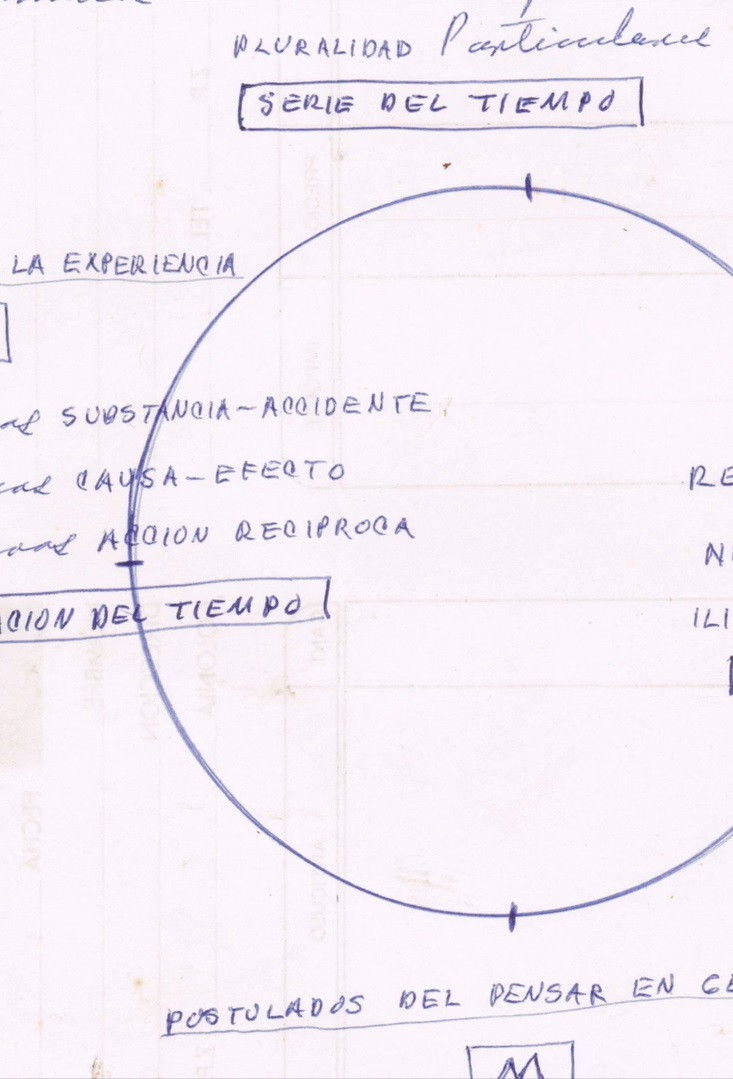 PLURALIDAD Particulares
SERIE DEL TIEMPO
LA EXPERIENCIA
as SUBSTANCIA-ACCIDENTE
cas CAUSA-EFECTO
RE
ACCION RECIPROCA
NI
ACION DEL TIEMPO
ILI
POSTULADOS DEL PENSAR EN GE
M